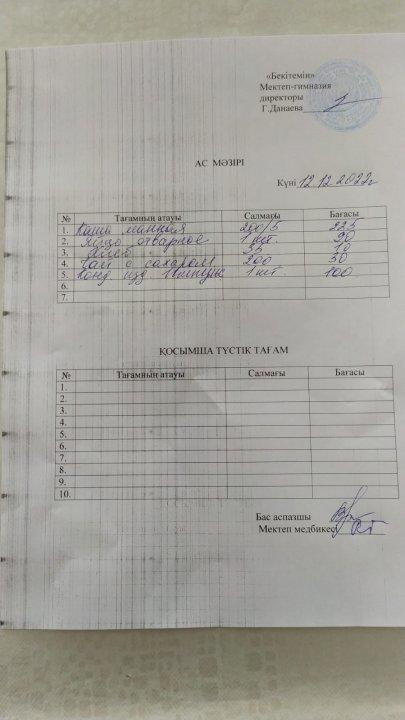 «Бекітемін»
Мектеп-гимназия
директоры
Г.Данаева
АС МӘЗІРІ
Күні 12.12.2022г
№ Тағамның атауы Салмағы Бағасы
1. Каша манная 200/5 225
2. Яйцо отварное 1 шт. 90
3. Хлеб 35 10
4. Чай с сахаром 200 30
5. Конд. изд 1 шт. 100
6.
7.
ҚОСЫМША ТҮСТІК ТАҒАМ
№ Тағамның атауы Салмағы Бағасы
1.
2.
3.
4.
5.
6.
7.
8.
9.
10.
Бас аспазшы
Мектеп медбикесі